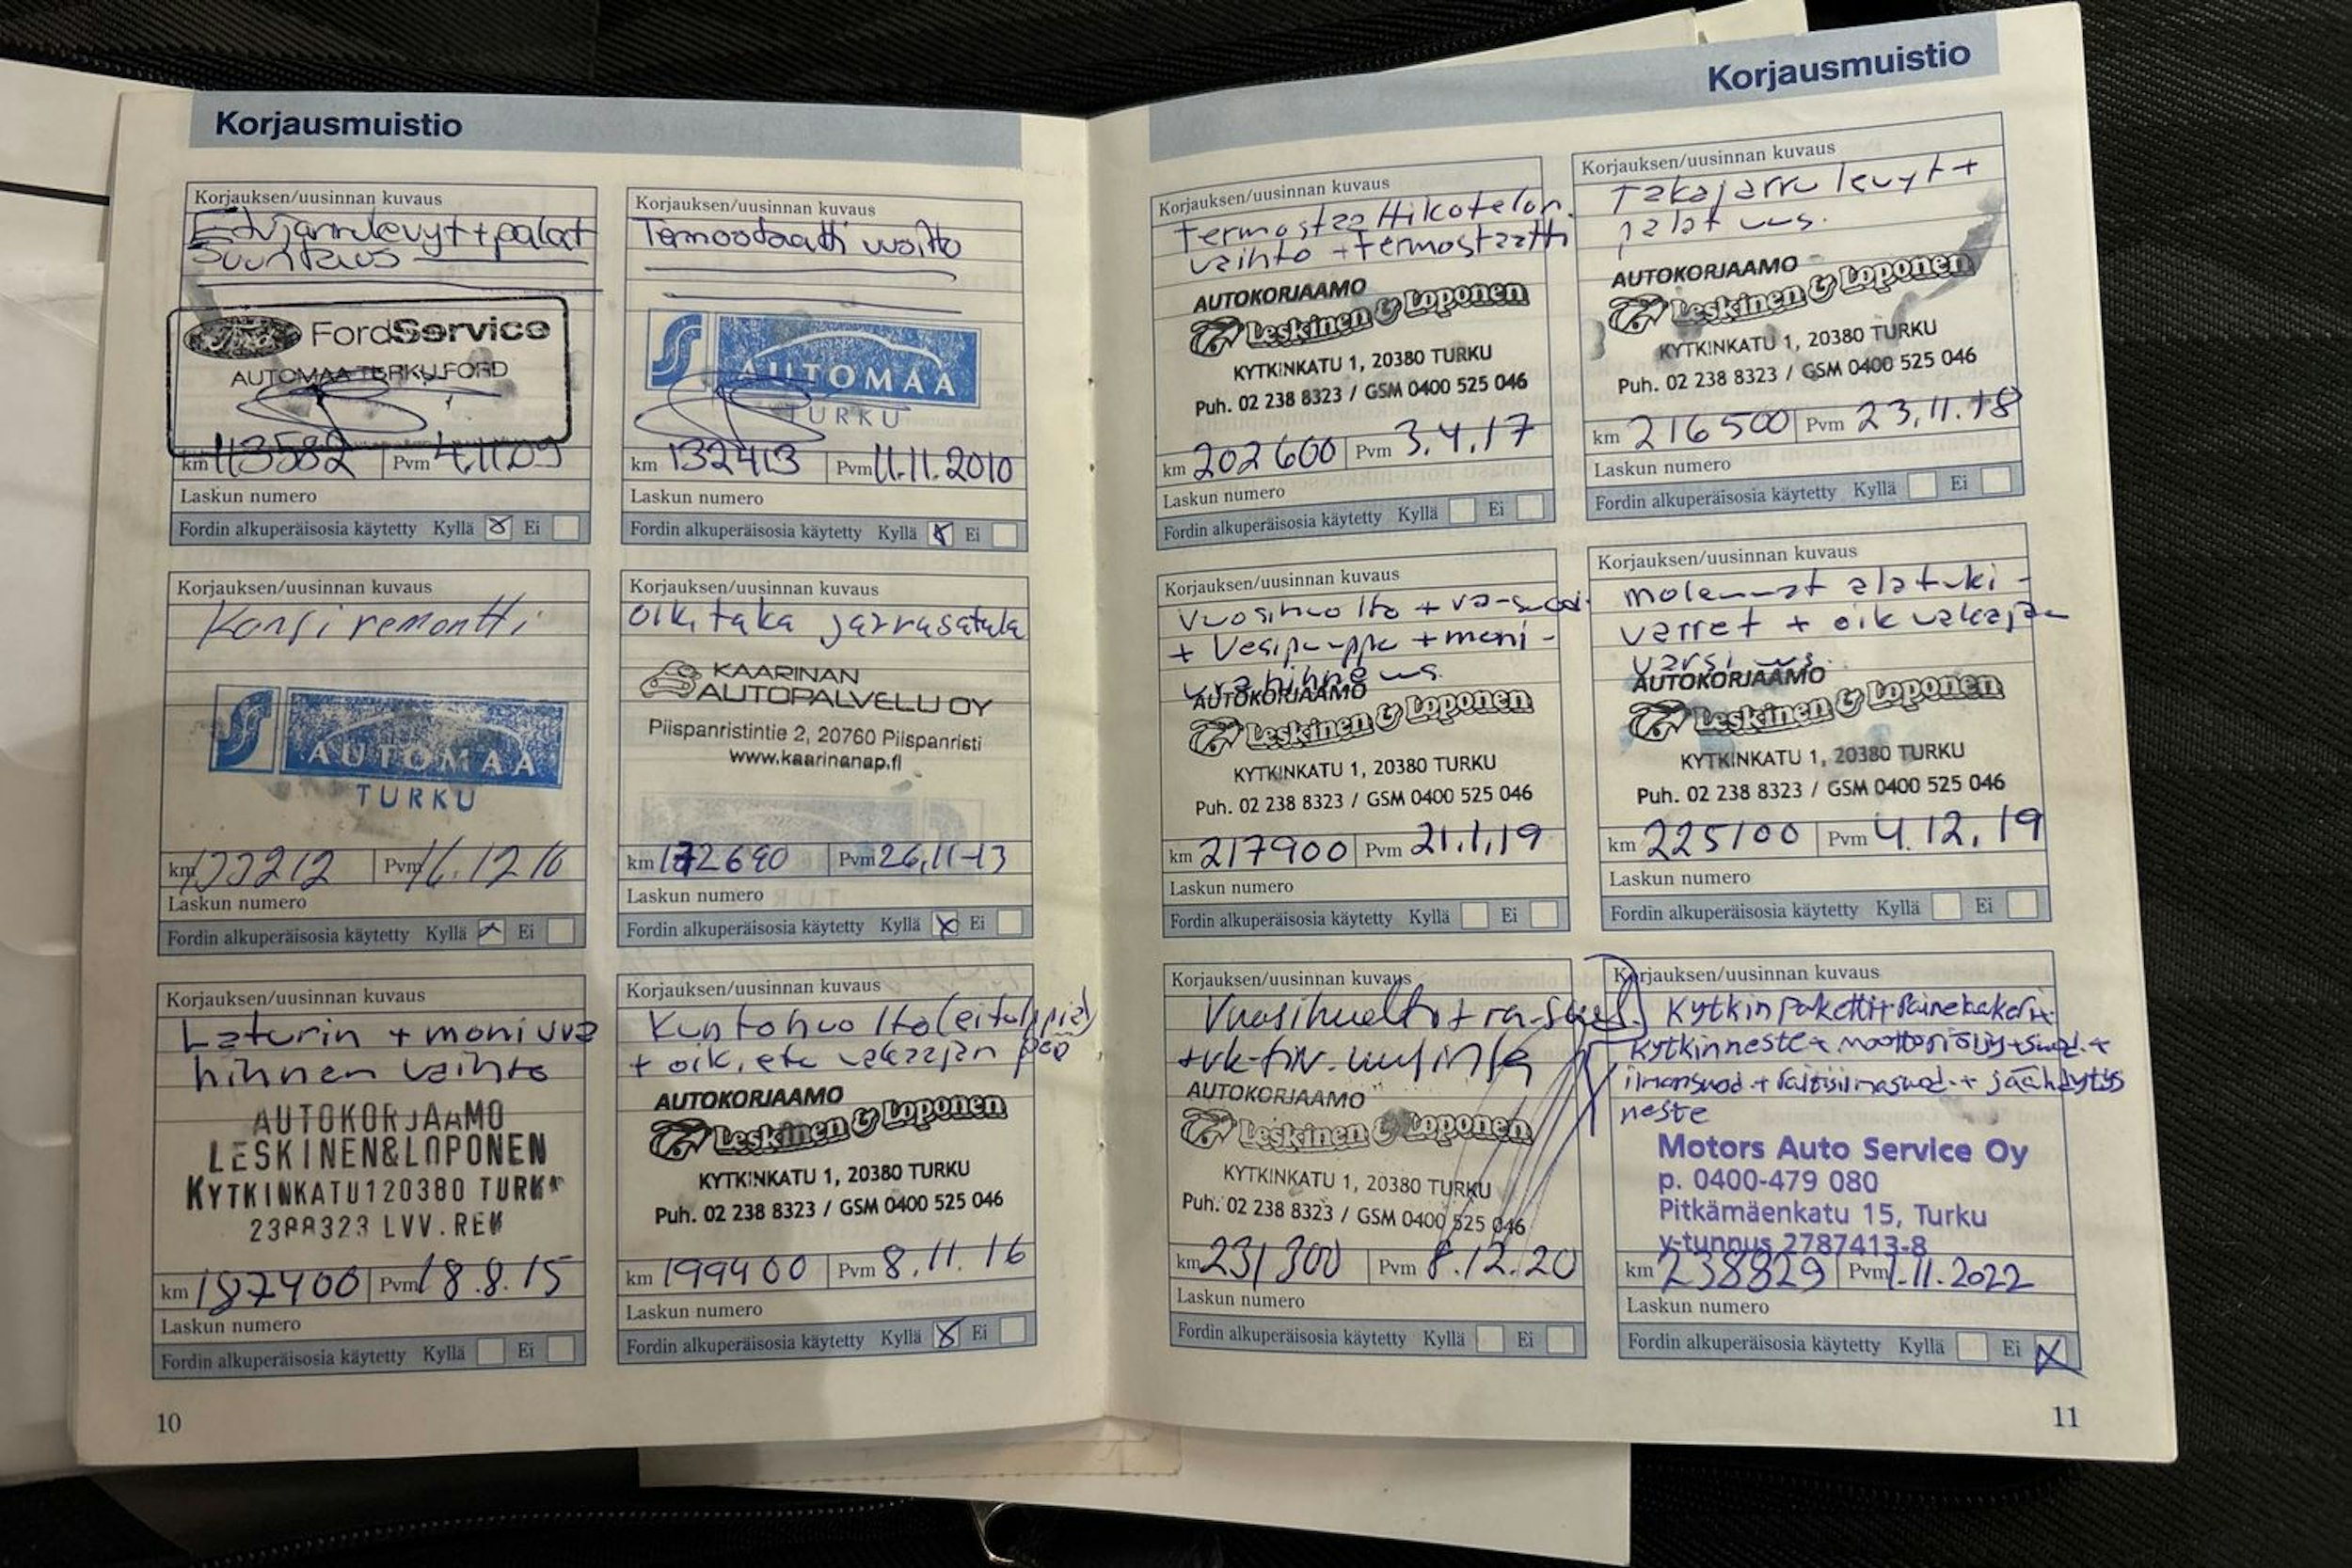 Korjausmuistio
Korjauksen/uusinnan kuvaus
Etujarrulevyt + palat
Suuntaus
Ford
FordService
AUTOMAA TURKU FORD
km 113582 Pvm 4.11.09
Laskun numero
Fordin alkuperäisosia käytetty Kyllä Ei
Korjauksen/uusinnan kuvaus
Termostaatti vaihto
AUTOMAA
TURKU
km 132413 Pvm 11.11.2010
Laskun numero
Fordin alkuperäisosia käytetty Kyllä Ei
Korjauksen/uusinnan kuvaus
Kansiremontti
AUTOMAA
TURKU
km 133212 Pvm 16.12 10
Laskun numero
Fordin alkuperäisosia käytetty Kyllä Ei
Korjauksen/uusinnan kuvaus
Oik, taka jarrusatula
KAARINAN
AUTOPALVELU OY
Piispanristintie 2, 20760 Piispanristi
www.kaarinanap.fi
km 172690 Pvm 26,11-13
Laskun numero
Fordin alkuperäisosia käytetty Kyllä Ei
Korjauksen/uusinnan kuvaus
Laturin + moniura
hihnan vaihto
AUTOKORJAAMO
LESKINEN&LOPONEN
KYTKINKATU120380 TURKU
2388323 LVV.REK
km 187400 Pvm 18.8.15
Laskun numero
Fordin alkuperäisosia käytetty Kyllä Ei
Korjauksen/uusinnan kuvaus
Kuntohuolto (ei tulppia)
+ oik, etu vakaajan
AUTOKORJAAMO
Leskinen & Loponen
KYTKINKATU 1, 20380 TURKU
Puh. 02 238 8323 / GSM 0400 525 046
km 199400 Pvm 8.11.16
Laskun numero
Fordin alkuperäisosia käytetty Kyllä Ei
10
Korjausmuistio
Korjauksen/uusinnan kuvaus
Termostaattikotelon
vaihto + termostaatti
AUTOKORJAAMO
Leskinen & Loponen
KYTKINKATU 1, 20380 TURKU
Puh. 02 238 8323 / GSM 0400 525 046
km 202600 Pvm 3.4.17
Laskun numero
Fordin alkuperäisosia käytetty Kyllä Ei
Korjauksen/uusinnan kuvaus
Takajarrulevyt +
palat uus.
AUTOKORJAAMO
Leskinen & Loponen
KYTKINKATU 1, 20380 TURKU
Puh. 02 238 8323 / GSM 0400 525 046
km 216500 Pvm 23,11.18
Laskun numero
Fordin alkuperäisosia käytetty Kyllä Ei
Korjauksen/uusinnan kuvaus
Vuosihuolto + ra-suod.
+ Vesipumppu + moni-
urahihna uus.
AUTOKORJAAMO
Leskinen & Loponen
KYTKINKATU 1, 20380 TURKU
Puh. 02 238 8323 / GSM 0400 525 046
km 217900 Pvm 21.1.19
Laskun numero
Fordin alkuperäisosia käytetty Kyllä Ei
Korjauksen/uusinnan kuvaus
molemmat alatuki-
varret + oik vakajan
varsi uus.
AUTOKORJAAMO
Leskinen & Loponen
KYTKINKATU 1, 20380 TURKU
Puh. 02 238 8323 / GSM 0400 525 046
km 225100 Pvm 4.12.19
Laskun numero
Fordin alkuperäisosia käytetty Kyllä Ei
Korjauksen/uusinnan kuvaus
Vuosihuolto + ra-suod.
uusinta
AUTOKORJAAMO
Leskinen & Loponen
KYTKINKATU 1, 20380 TURKU
Puh. 02 238 8323 / GSM 0400 525 046
km 231300 Pvm 8.12.20
Laskun numero
Fordin alkuperäisosia käytetty Kyllä Ei
Korjauksen/uusinnan kuvaus
Kytkinpaketti + Painelaakeri +
Kytkinneste + moottoriöljy + suod. +
ilmansuod. + raitisilmasuod. + jäähdytys
neste
Motors Auto Service Oy
p. 0400-479 080
Pitkämäenkatu 15, Turku
y-tunnus 2787413-8
km 238829 Pvm 1.11.2022
Laskun numero
Fordin alkuperäisosia käytetty Kyllä Ei
11